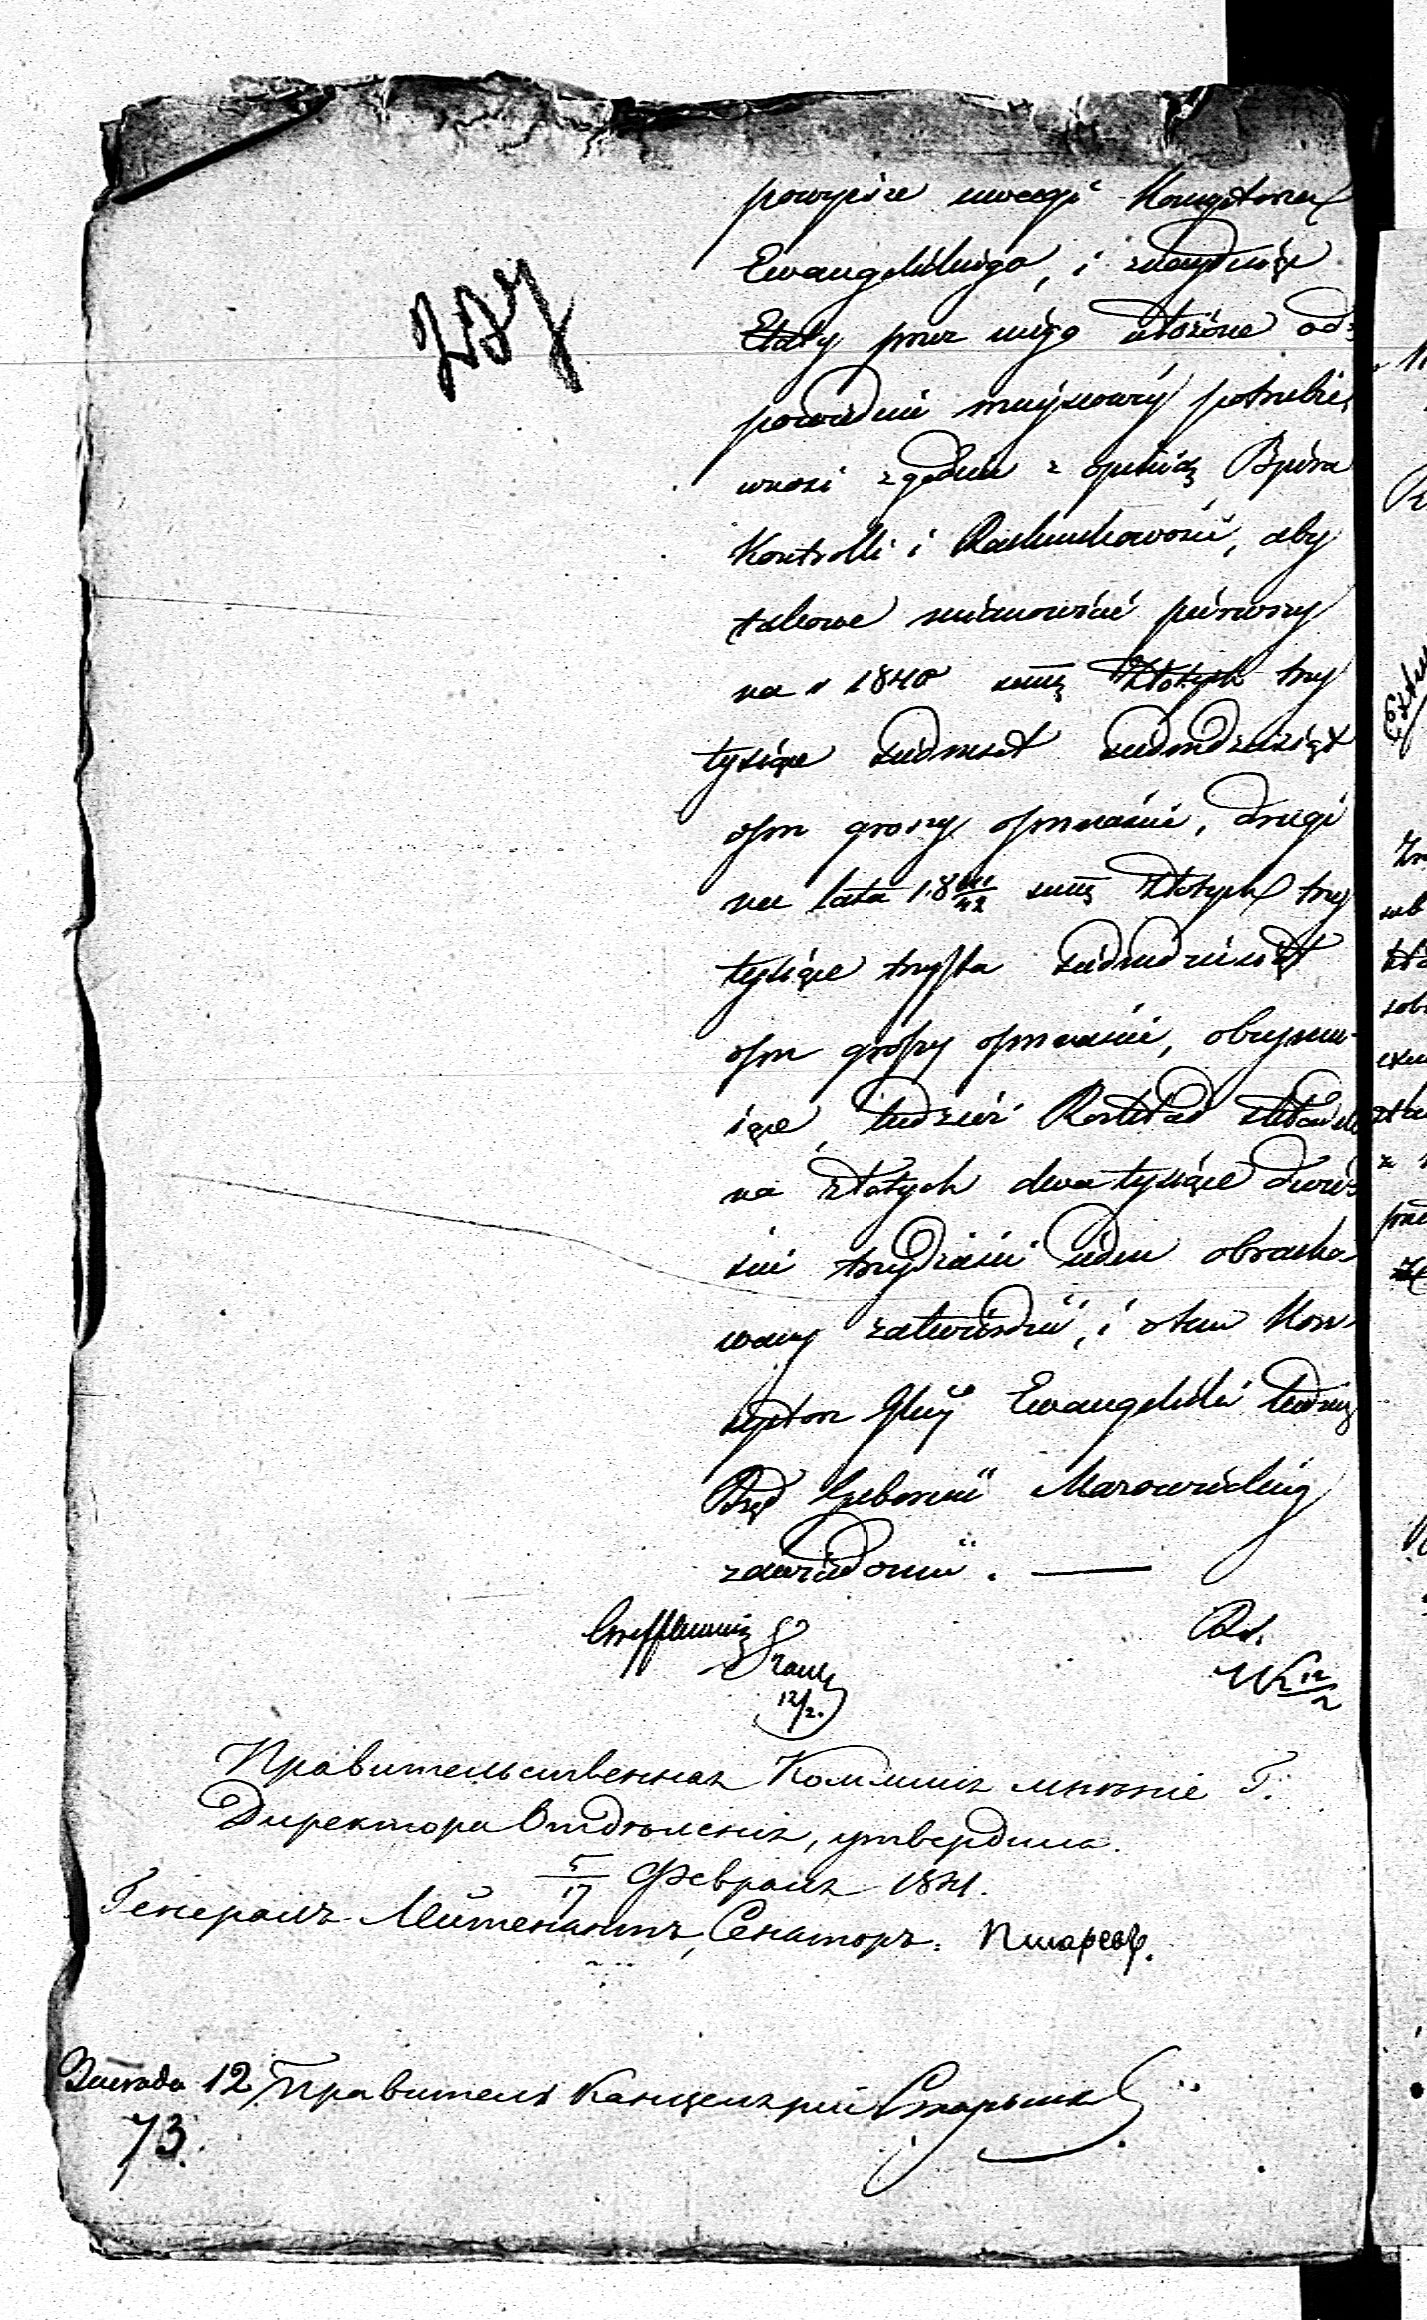 237
powyższe uwagi Konsystorza
Ewangelickiego, i znajdując
Etaty przez niego ułożone od-
powiednie miejscowej potrzebie,
wnosi zgodnie z opinią Biura
Kontrolli i Rachunkowości, aby
takowe mianowicie pierwszy
na r 1840 summę Złotych trzy
tysiące siedmset siedmdziesiąt
ośm groszy ośmnaście, drugi
na lata 18 41/42 summę Złotych trzy
tysiące trzysta siedmdziesiąt
ośm groszy ośmnaście, obejmu-
iące, tudzież Rozkład składek
na złotych dwa tysiące dwie-
ście trzydzieści ieden obracho-
wany zatwierdzić, i o tem Kon-
systorz Ewangelicki tudzież
Rząd Gubernii Mazowieckiej
zawiadomić. —
12/2.
12/2
Правительственная Коммисія мнѣніе Г.
Директора Отдѣленія, утвердила.
5/17 Февраля 1841.
Генералъ-Лейтенантъ, Сенаторъ: Писаревъ.
12 Правитель Канцеляріи
73.